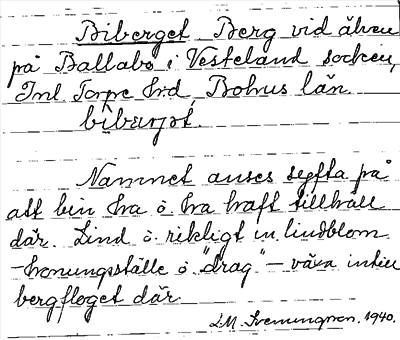 Biberget Berg vid älven
på Ballabo i Vesteland socken,
Inl Torpe hrd, Bohus län.
bibærjət.
Namnet anses syfta på
att bin ha ö. ha haft tillhåll
där. Lind ö. rikeligt m. lindblom
- honungsställe ö. "drag" - växa intill
bergfloget där
L.M. Svenungsson. 1940.